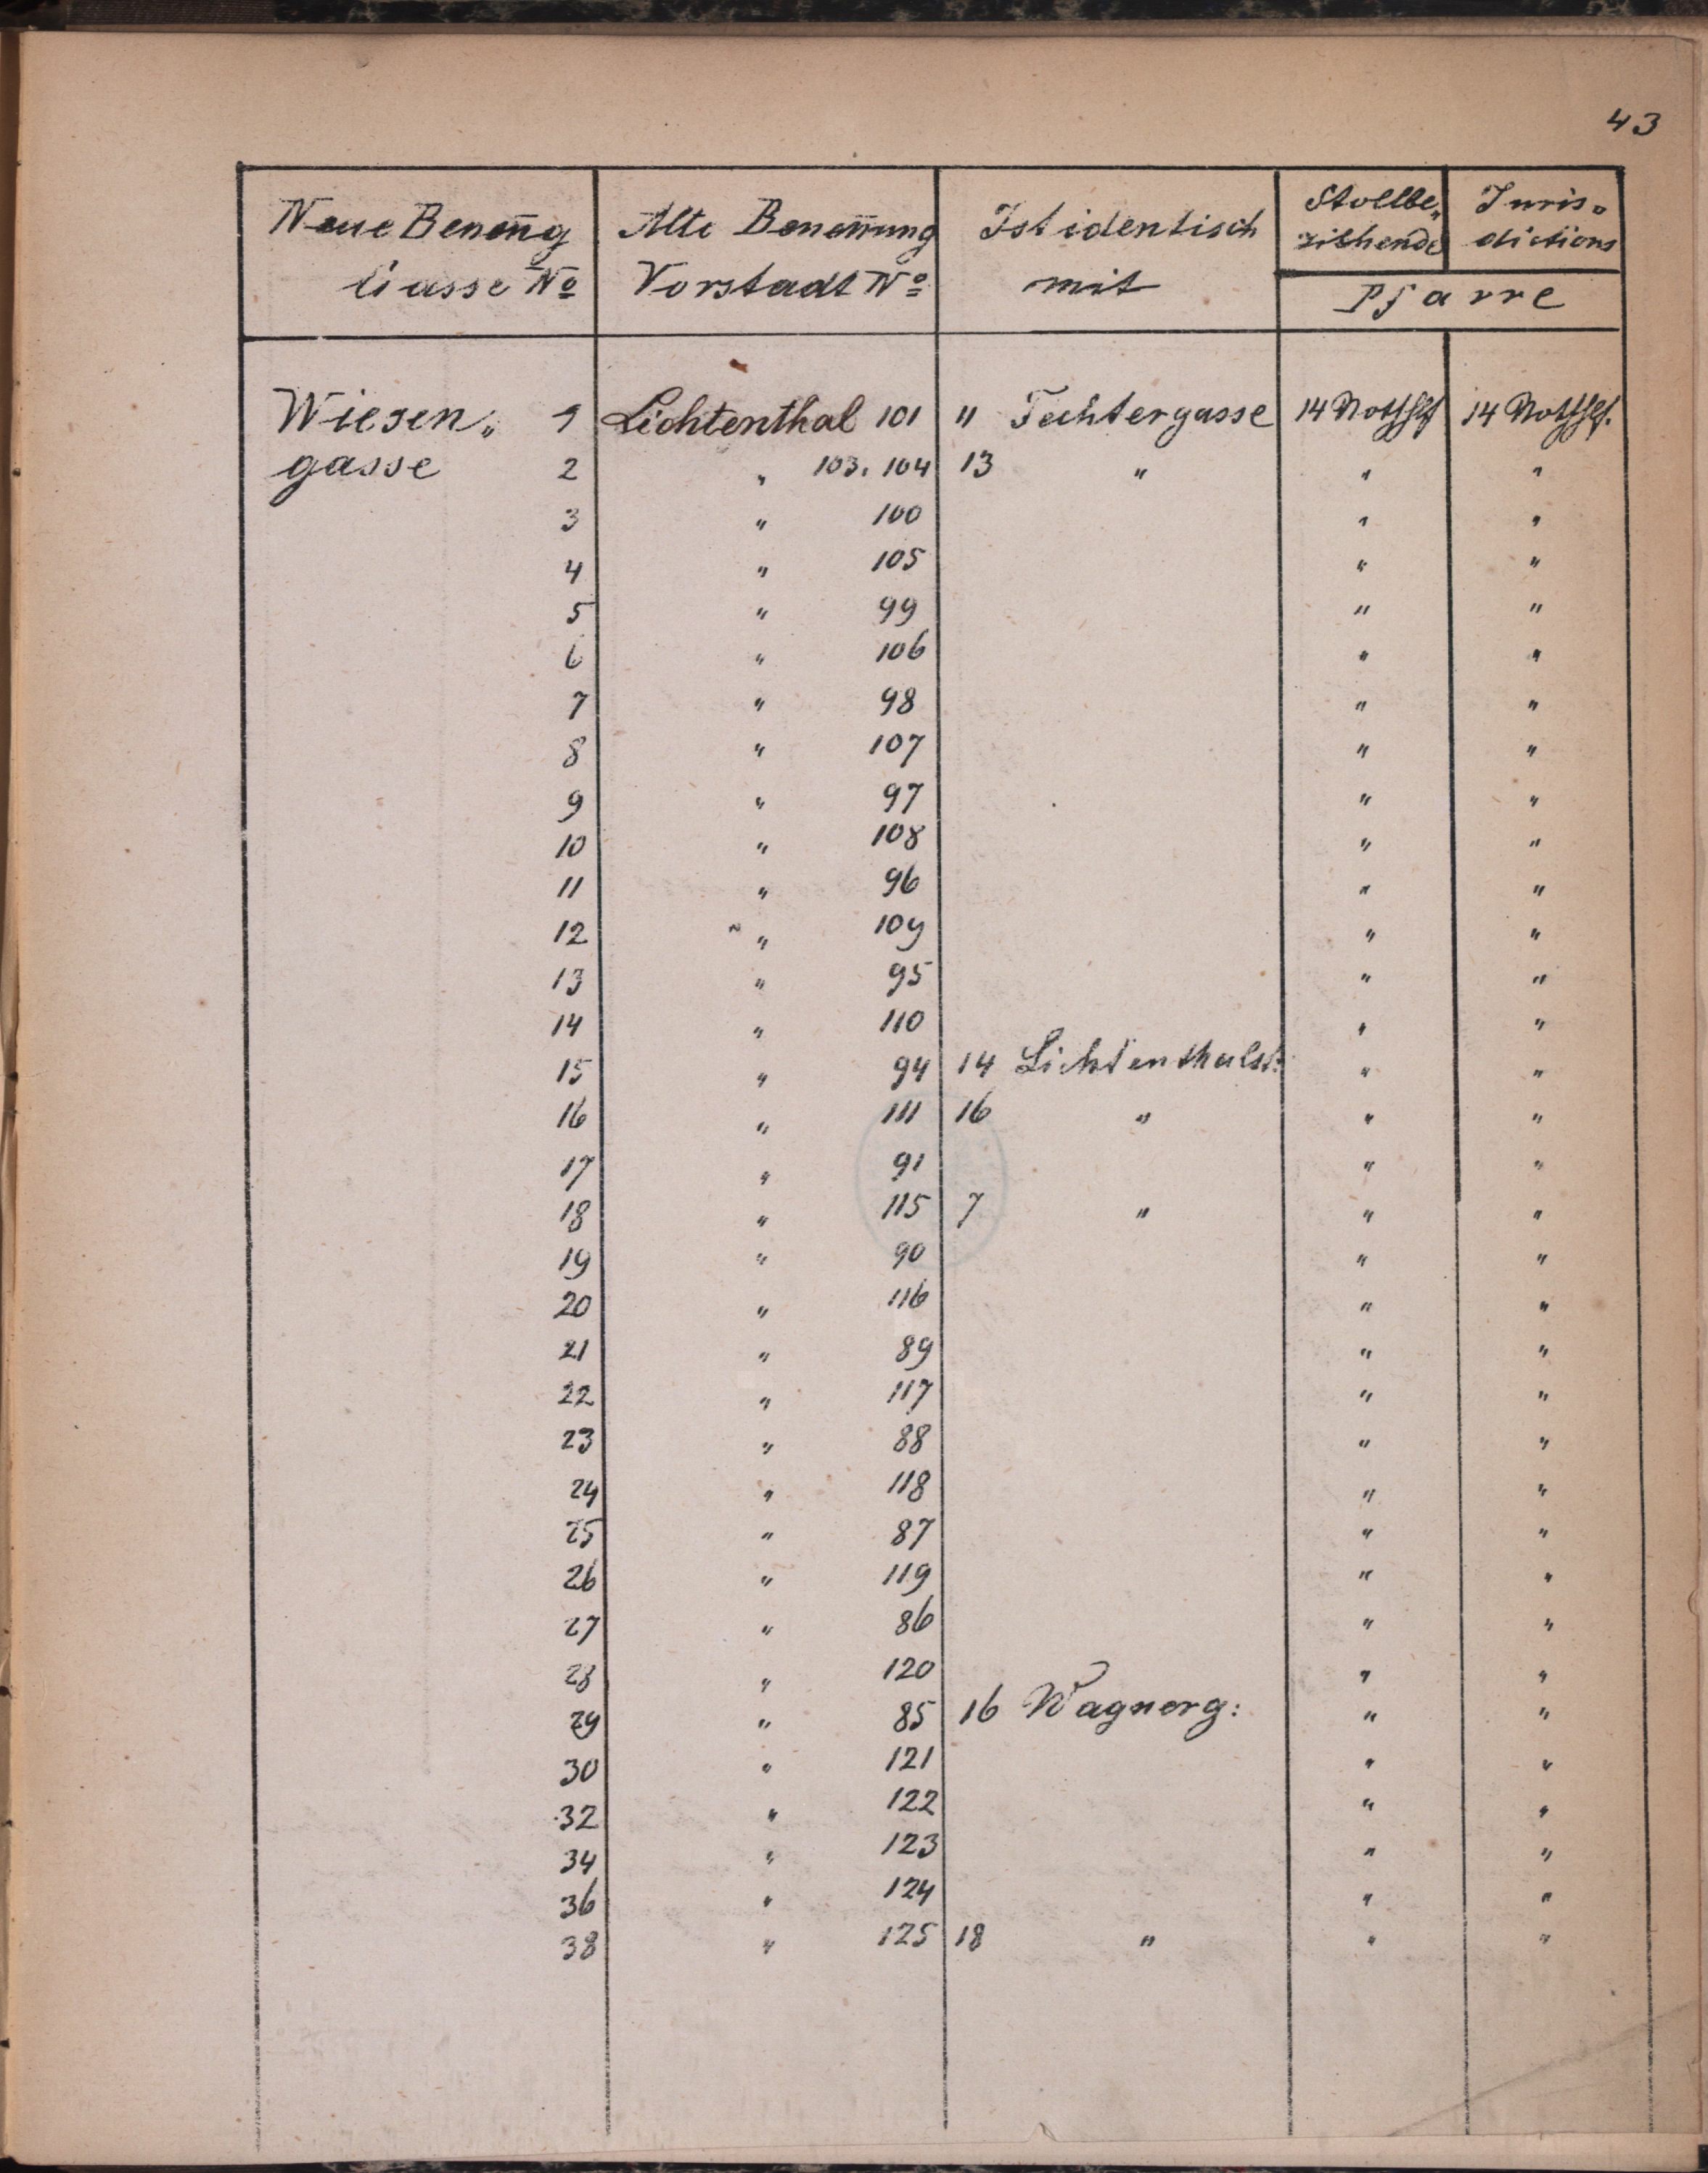 43
Neue Benen̄g Alte Benen̄ung Ist identisch Stollbe„ Juris„
Gasse No Vorstadt No mit ziehende dictions
Pfarre
Wiesen„ 1 Lichtenthal 101 11 Fechtergasse 14 Nothhlf 14 Nothhlf.
gasse 2 " 103. 104 13 " " "
3 " 100 " "
4 " 105 " "
5 " 99 " "
6 " 106 " "
7 " 98 " "
8 " 107 " "
9 " 97 " "
10 " 108 " "
11 " 96 " "
12 " 109 " "
13 " 95 " "
14 " 110 " "
15 " 94 14 Lichtenthalst: " "
16 " 111 16 " " "
17 " 91 " "
18 " 115 7 " " "
19 " 90 " "
20 " 116 " "
21 " 89 " "
22 " 117 " "
23 " 88 " "
24 " 118 " "
25 " 87 " "
26 " 119 " "
27 " 86 " "
28 " 120 " "
29 " 85 16 Wagnerg: " "
30 " 121 " "
32 " 122 " "
34 " 123 " "
36 " 124 " "
38 " 125 18 " " "